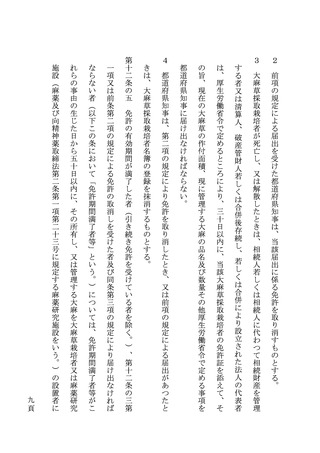 ２　前項の規定による届出を受けた都道府県知事は、当該届出に係る免許を取り消すものとする。
３　大麻草採取栽培者が死亡し、又は解散したときは、相続人若しくは相続人に代わつて相続財産を管理
する者又は清算人、破産管財人若しくは合併後存続し、若しくは合併により設立された法人の代表者
は、厚生労働省令で定めるところにより、三十日以内に、当該大麻草採取栽培者の免許証を添えて、そ
の旨、現在の大麻草の作付面積、現に管理する大麻の品名及び数量その他厚生労働省令で定める事項を
都道府県知事に届け出なければならない。
４　都道府県知事は、第二項の規定により免許を取り消したとき、又は前項の規定による届出があつたと
きは、大麻草採取栽培者名簿の登録を抹消するものとする。
第十二条の五　免許の有効期間が満了した者（引き続き免許を受けている者を除く。）、第十二条の三第
一項又は前条第二項の規定による免許の取消しを受けた者及び同条第三項の規定により届け出なければ
ならない者（以下この条において「免許期間満了者等」という。）については、免許期間満了者等がこ
れらの事由の生じた日から五十日以内に、その所有し、又は管理する大麻を大麻草栽培者又は麻薬研究
施設（麻薬及び向精神薬取締法第二条第一項第二十三号に規定する麻薬研究施設をいう。）の設置者に
九頁